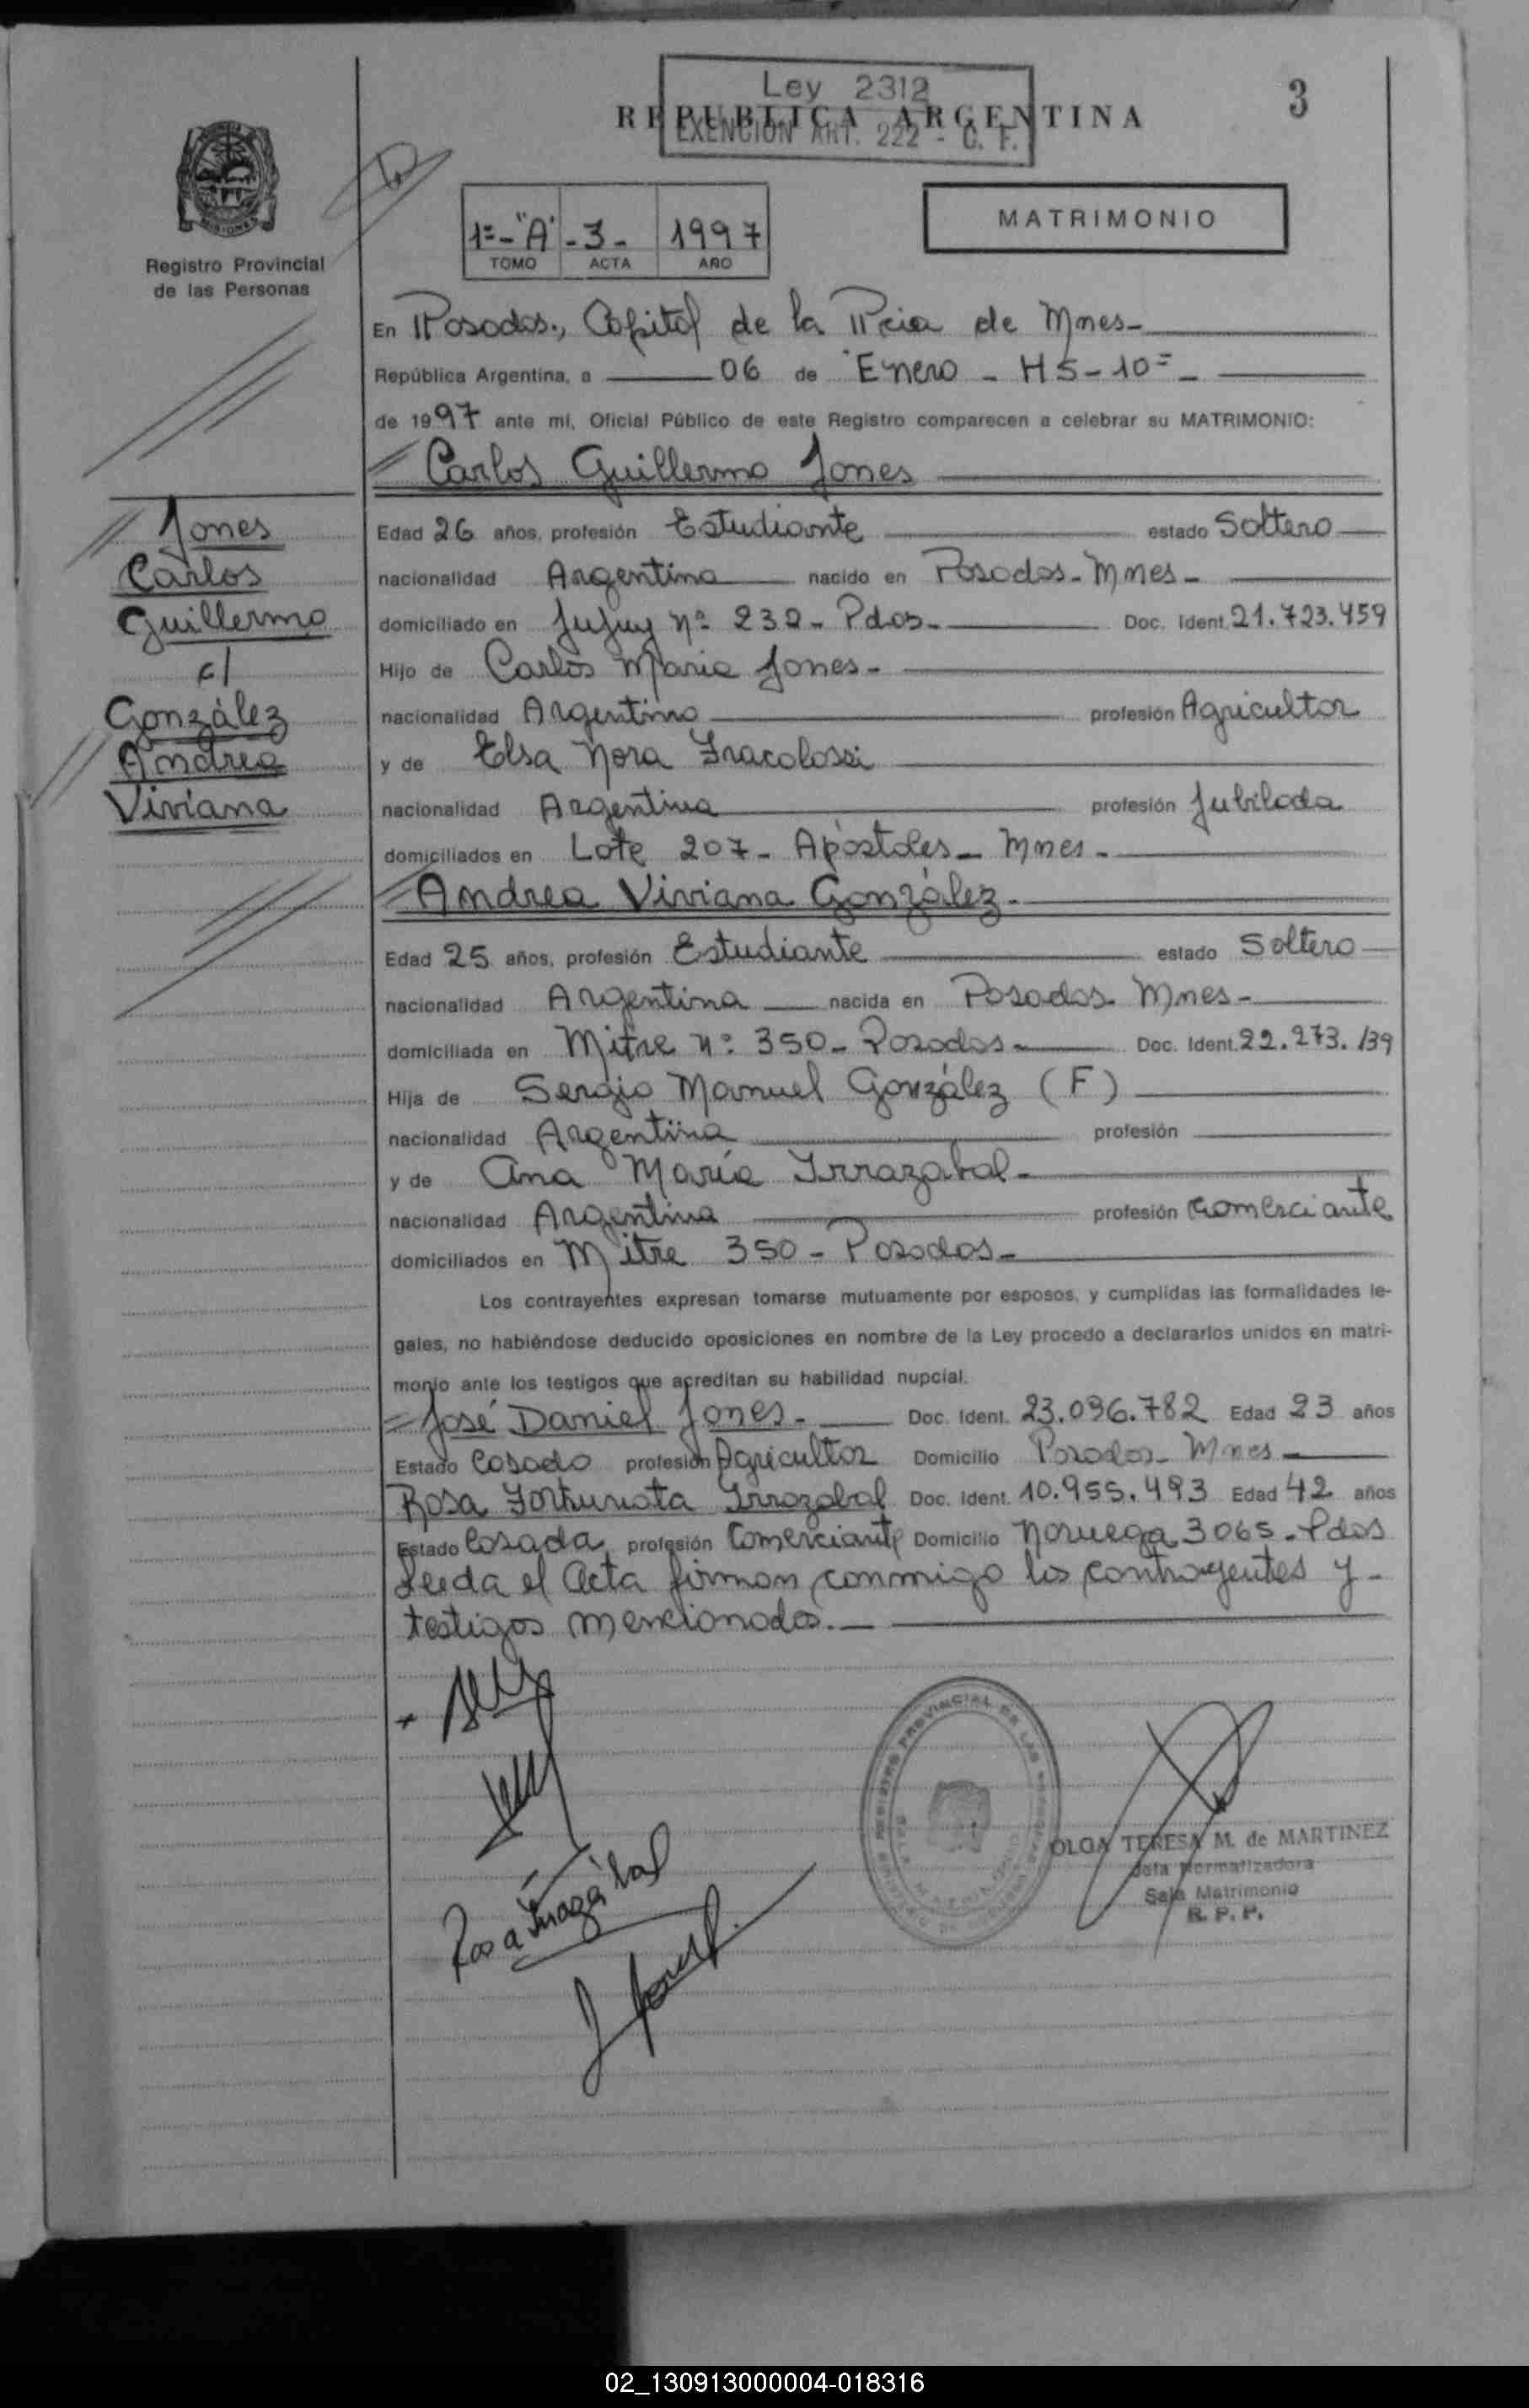 Ley 2312
REPUBLICA ARGENTINA
EXENCION ART. 222 - C. F.
3
MISIONES
Registro Provincial
de las Personas
1º-"A"
-3-
1997
TOMO
ACTA
AÑO
MATRIMONIO
En Posadas., Capital de la Pcia de Mnes-
República Argentina, a 06 de Enero - HS-10=-
de 1997 ante mi, Oficial Público de este Registro comparecen a celebrar su MATRIMONIO:
Carlos Guillermo Jones
Jones
Carlos
Guillermo
c/
González
Andrea
Viviana
Edad 26 años, profesión Estudiante estado Soltero
nacionalidad Argentina nacido en Posadas-Mnes-
domiciliado en Jujuy nº 232- Pdas- Doc. Ident. 21.723.459
Hijo de Carlos Maria Jones-
nacionalidad Argentino profesión Agricultor
y de Elsa Nora Fracolossi
nacionalidad Argentina profesión Jubilada
domiciliados en Lote 207- Apóstoles- Mnes-
Andrea Viviana González-
Edad 25 años, profesión Estudiante estado Soltero
nacionalidad Argentina nacida en Posadas- Mnes-
domiciliada en Mitre nº 350- Posadas- Doc. Ident. 22.273.139
Hija de Sergio Manuel González (F)
nacionalidad Argentina profesión
y de Ana María Irrazabal-
nacionalidad Argentina profesión Comerciante
domiciliados en Mitre 350- Posadas-
Los contrayentes expresan tomarse mutuamente por esposos, y cumplidas las formalidades le-
gales, no habiéndose deducido oposiciones en nombre de la Ley procedo a declararlos unidos en matri-
monio ante los testigos que acreditan su habilidad nupcial.
José Daniel Jones- Doc. Ident. 23.096.782 Edad 23 años
Estado Casado profesión Agricultor Domicilio Posadas- Mnes-
Rosa Fortunata Irrazabal Doc. Ident. 10.955.493 Edad 42 años
Estado Casada profesión Comerciante Domicilio Noruega 3065-Pdas
Leida el Acta firman conmigo los contrayentes y-
testigos mencionados.-
Rosa Irrazábal
REGISTRO PROVINCIAL DE LAS PERSONAS
OLGA TERESA M. de MARTINEZ
Jefa Normatizadora
Sala Matrimonio
R. P. P.
02_130913000004-018316